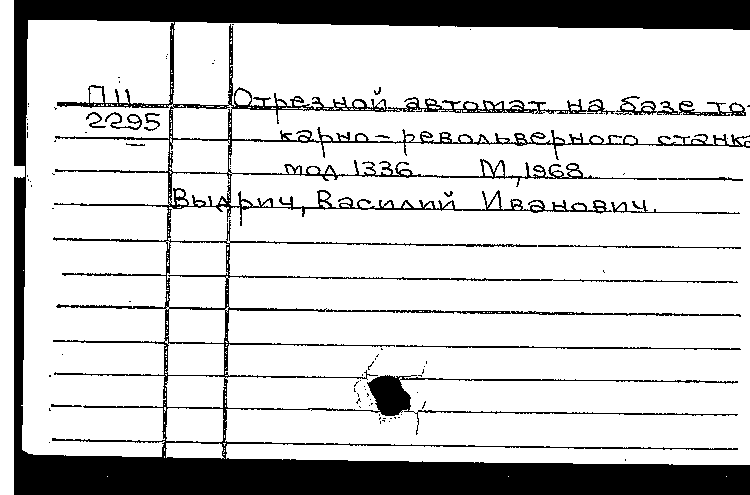 П11 Отрезной автомат на базе то-
2295 карно-револьверного станка
мод 1336. М, 1968.
Выдрич, Василий Иванович.